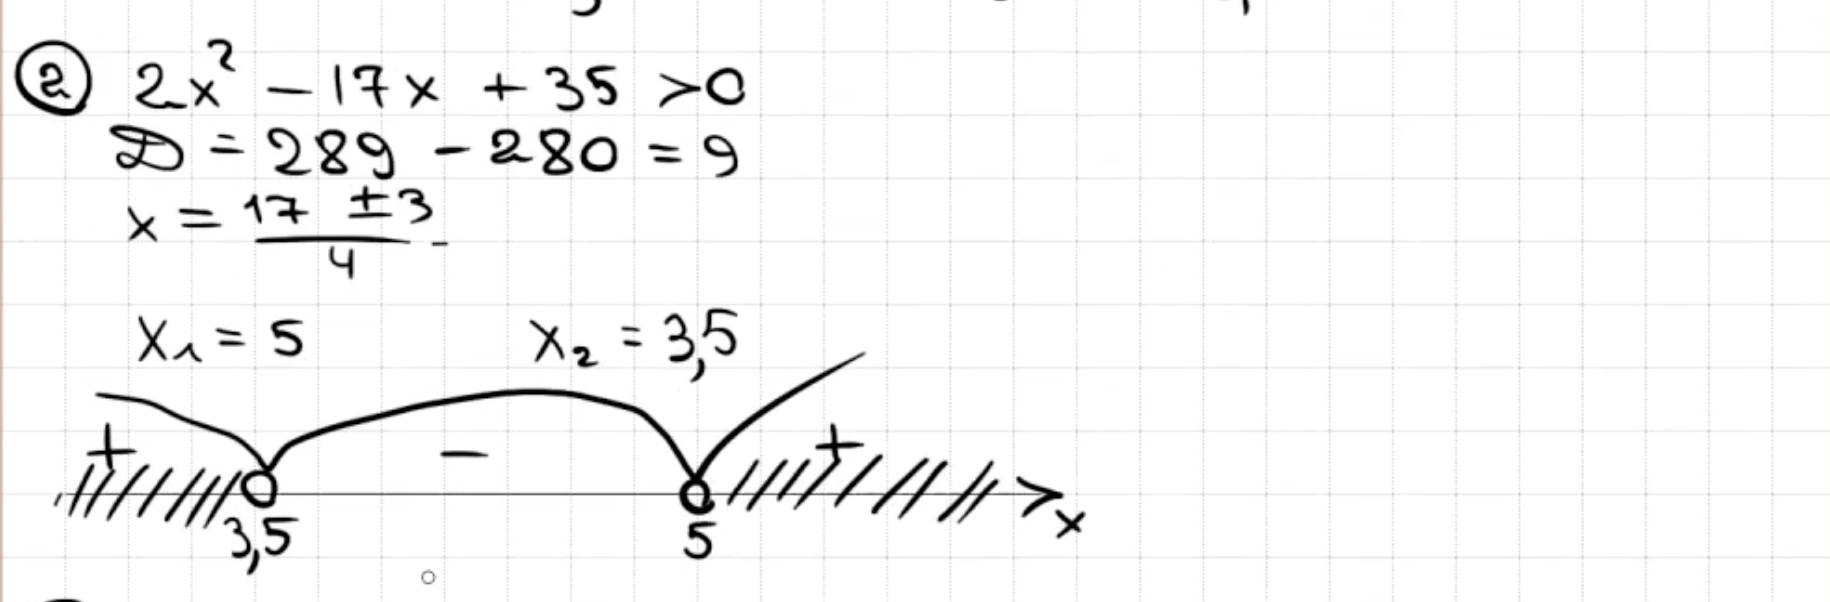 ② 2x² - 17x + 35 > 0
D = 289 - 280 = 9
x = (17 ± 3)/4 -
x₁ = 5 x₂ = 3,5
+ - +
3,5 5 x